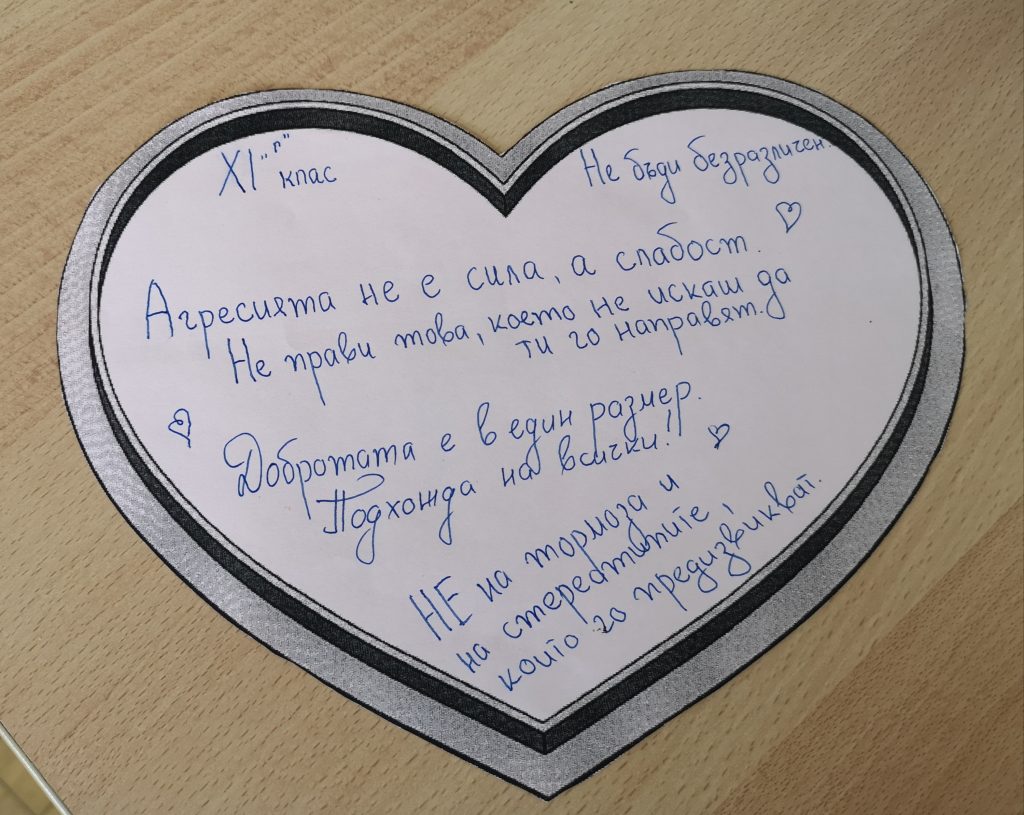 XI „г"
клас
Не бъди безразличен.
Агресията не е сила, а слабост.
Не прави това, което не искаш да
ти го направят.
Добротата е в един размер.
Подхожда на всички!!
НЕ на тормоза и
на стереотипите,
които го предизвикват.